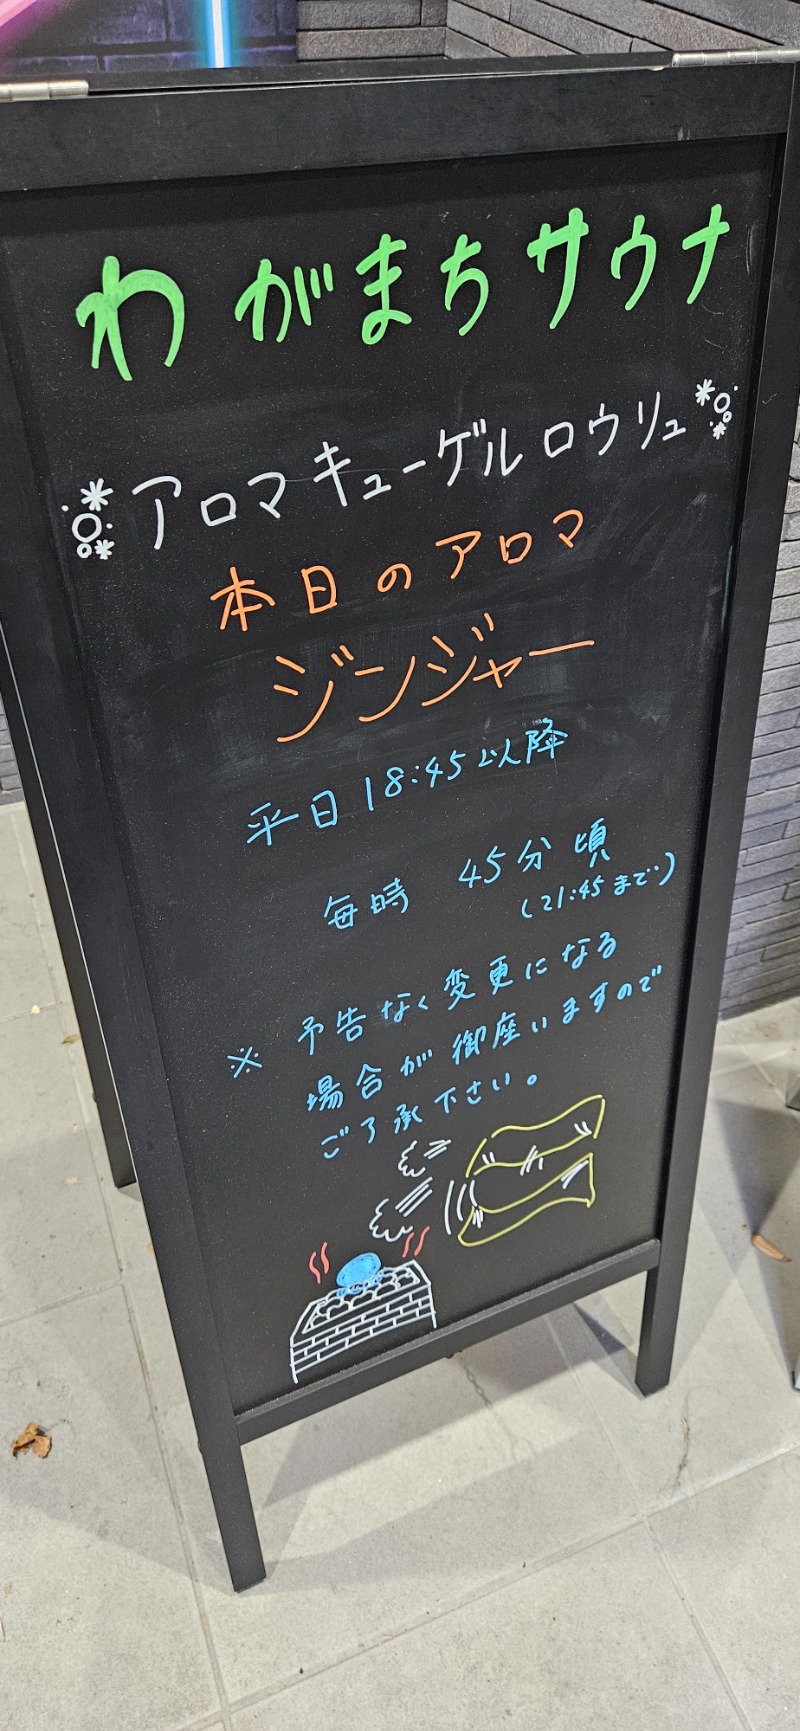 わがまちサウナ
アロマキューゲルロウリュ
本日のアロマ
ジンジャー
平日18:45以降
毎時 45分頃
(21:45まで)
※ 予告なく変更になる
場合が御座いますので
ご了承下さい。